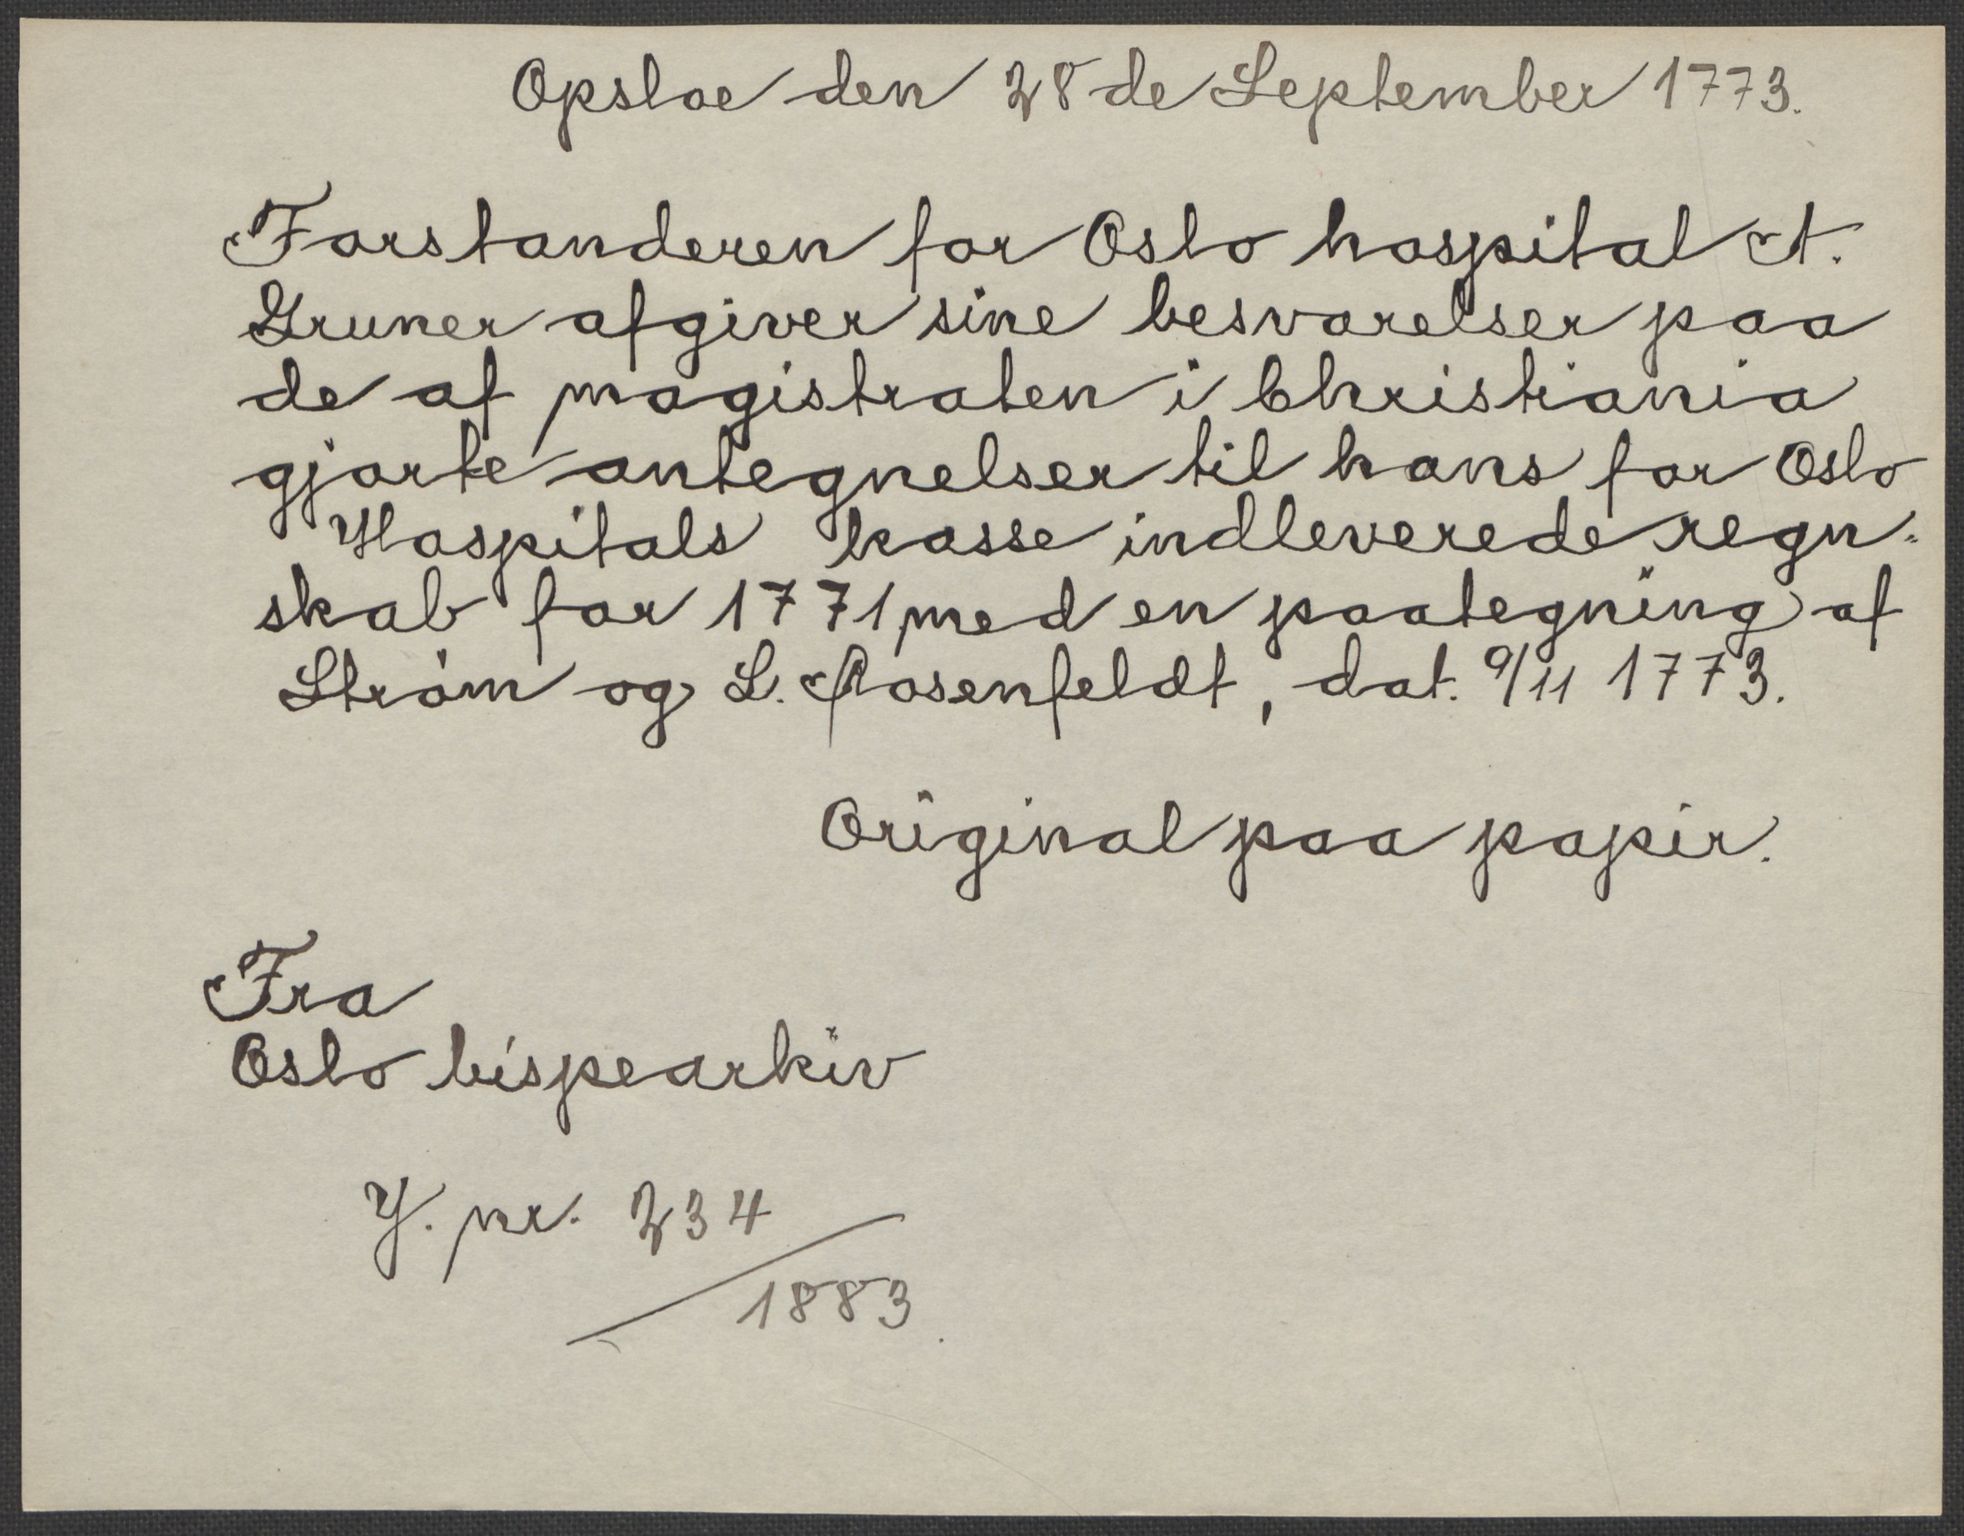 Opsloe den 28de September 1773.
Forstanderen for Oslo hospital A.
Gruner afgiver sine besvarelser paa
de af magistraten i Christiania
gjorte antegnelser til hans for Oslo
Hospitals kasse indleverede regn-
skab for 1771 med en paategning af
Strøm og L. Rosenfeldt, dat. 9/11 1773.
Original paa papir.
Fra
Oslo bispearkiv
J. nr. 234
/1883.